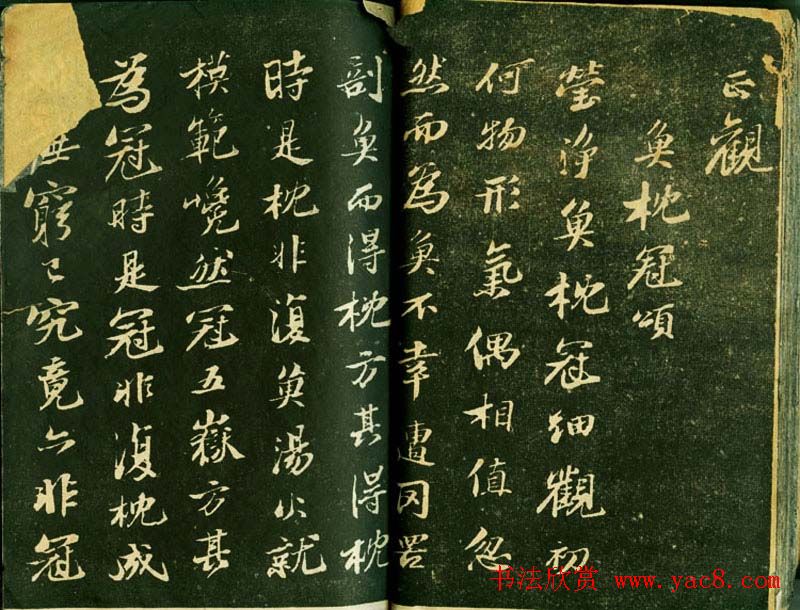 正觀
魚枕冠頌
瑩净魚枕冠細觀初
何物形氣偶相值忽
然而為魚不幸遭罔罟
剖魚而得枕方其得枕
時是枕非復魚湯火就
模範巉然冠五嶽方其
為冠時是冠非復枕成
無窮已究竟亦非冠
书法欣赏 www.yac8.com